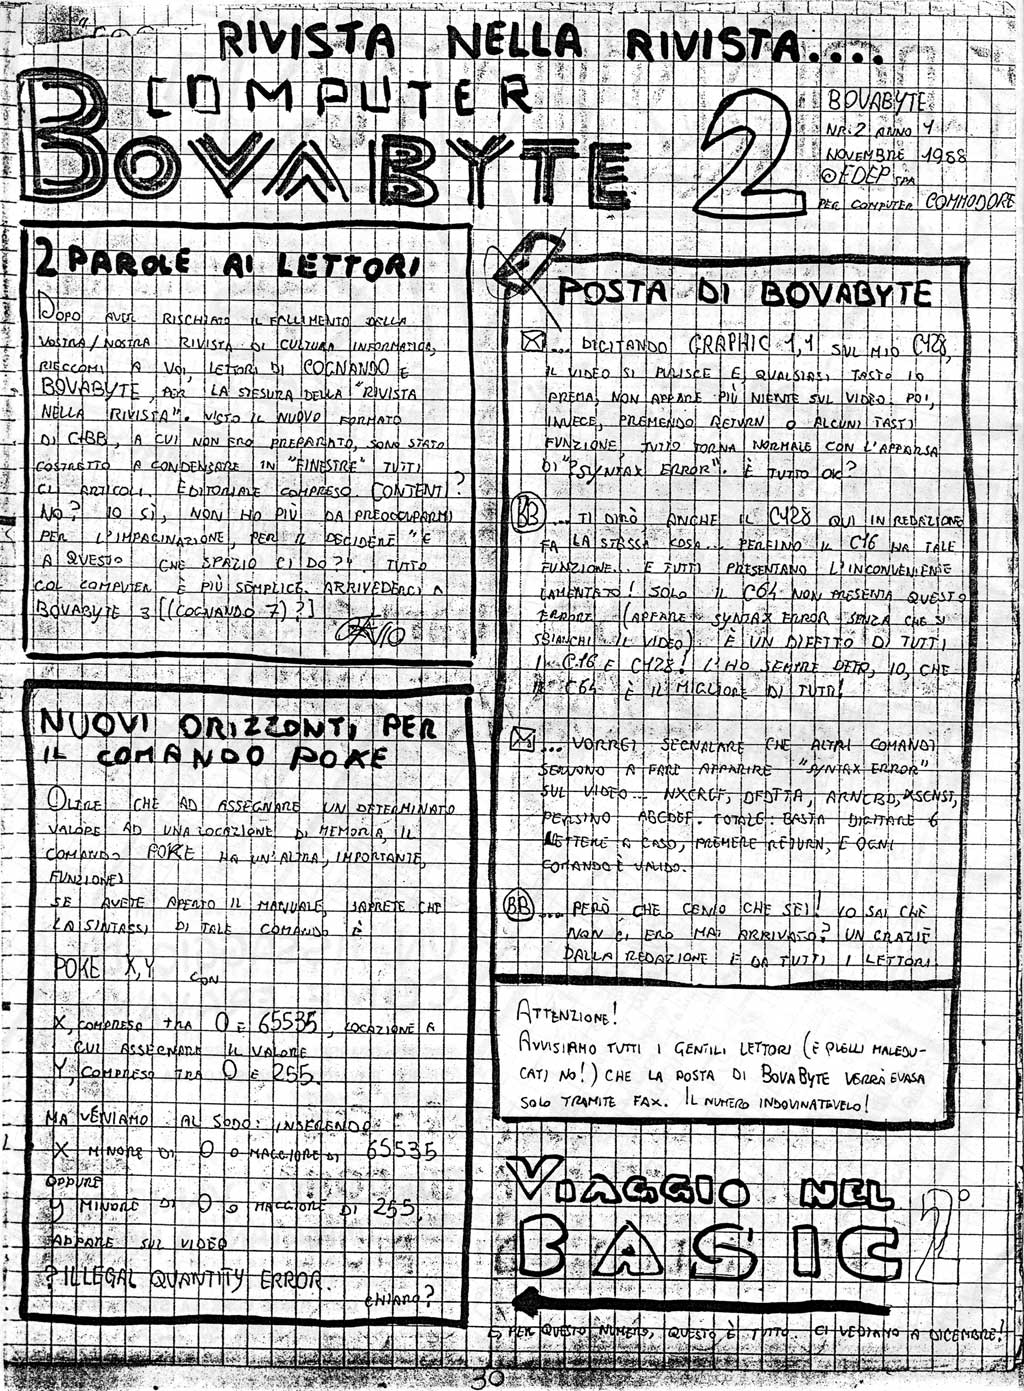 RIVISTA NELLA RIVISTA....
COMPUTER
BOVABYTE 2
BOVABYTE
NR. 2 ANNO 1
NOVEMBRE 1988
©EDEP SPA
PER COMPUTER COMMODORE
2 PAROLE AI LETTORI
DOPO AVER RISCHIATO IL FALLIMENTO DELLA
VOSTRA/NOSTRA RIVISTA DI CULTURA INFORMATICA,
RIECCOMI A VOI, LETTORI DI COGNANDO E
BOVABYTE, PER LA STESURA DELLA "RIVISTA
NELLA RIVISTA". VISTO IL NUOVO FORMATO
DI C+BB, A CUI NON ERO PREPARATO, SONO STATO
COSTRETTO A CONDENSARE IN "FINESTRE" TUTTI
GLI ARTICOLI. EDITORIALE COMPRESO. CONTENTI?
NO? IO SÌ, NON HO PIÙ DA PREOCCUPARMI
PER L'IMPAGINAZIONE, PER IL DECIDERE "E
A QUESTO CHE SPAZIO CI DO?". TUTTO
COL COMPUTER È PIÙ SEMPLICE. ARRIVEDERCI A
BOVABYTE 3 [(COGNANDO 7)?]
NUOVI ORIZZONTI PER
IL COMANDO POKE
OLTRE CHE AD ASSEGNARE UN DETERMINATO
VALORE AD UNA LOCAZIONE DI MEMORIA, IL
COMANDO POKE HA UN'ALTRA, IMPORTANTE,
FUNZIONE!
SE AVETE APERTO IL MANUALE, SAPRETE CHE
LA SINTASSI DI TALE COMANDO È
POKE X,Y CON
X, COMPRESO TRA 0 E 65535, LOCAZIONE A
CUI ASSEGNARE IL VALORE
Y, COMPRESO TRA 0 E 255.
MA VENIAMO AL SODO: INSERENDO
X MINORE DI 0 O MAGGIORE DI 65535
OPPURE
Y MINORE DI 0 O MAGGIORE DI 255,
APPARE SUL VIDEO
?ILLEGAL QUANTITY ERROR.
CHIARO?
POSTA DI BOVABYTE
... DIGITANDO GRAPHIC 1,1 SUL MIO C128,
IL VIDEO SI PULISCE E, QUALSIASI TASTO IO
PREMA, NON APPARE PIÙ NIENTE SUL VIDEO. POI,
INVECE, PREMENDO RETURN O ALCUNI TASTI
FUNZIONE, TUTTO TORNA NORMALE CON L'APPARSA
DI "?SYNTAX ERROR". È TUTTO OK?
BB ... TI DIRÒ ANCHE IL C128 QUI IN REDAZIONE
FA LA STESSA COSA... PERFINO IL C16 HA TALE
FUNZIONE... E TUTTI PRESENTANO L'INCONVENIENTE
LAMENTATO! SOLO IL C64 NON PRESENTA QUESTO
ERRORE (APPARE SYNTAX ERROR SENZA CHE SI
SBIANCHI IL VIDEO). È UN DIFETTO DI TUTTI
I C16 E C128! L'HO SEMPRE DETTO, IO, CHE
IL C64 È IL MIGLIORE DI TUTTI!
... VORREI SEGNALARE CHE ALTRI COMANDI
SERVONO A FARE APPARIRE "SYNTAX ERROR"
SUL VIDEO... NXCRGF, DFDTTA, ARNCBD,
PERSINO ABCDEF. TOTALE: BASTA DIGITARE 6
LETTERE A CASO, PREMERE RETURN, E OGNI
COMANDO È VALIDO.
BB ... PERÒ, CHE GENIO CHE SEI! LO SAI CHE
NON CI ERO MAI ARRIVATO? UN GRAZIE
DALLA REDAZIONE E DA TUTTI I LETTORI.
ATTENZIONE!
AVVISIAMO TUTTI I GENTILI LETTORI (E QUELLI MALEDU-
CATI NO!) CHE LA POSTA DI BOVABYTE VERRÀ EVASA
SOLO TRAMITE FAX. IL NUMERO INDOVINATEVELO!
VIAGGIO NEL
BASIC 2°
PER QUESTO NUMERO, QUESTO È TUTTO. CI VEDIAMO A DICEMBRE!
30